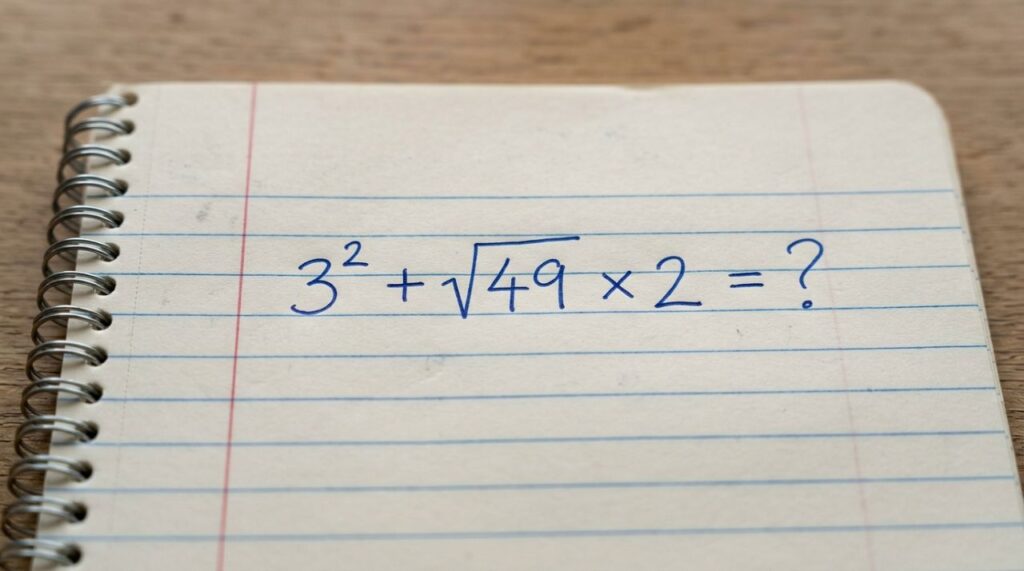 3² + √49 × 2 = ?